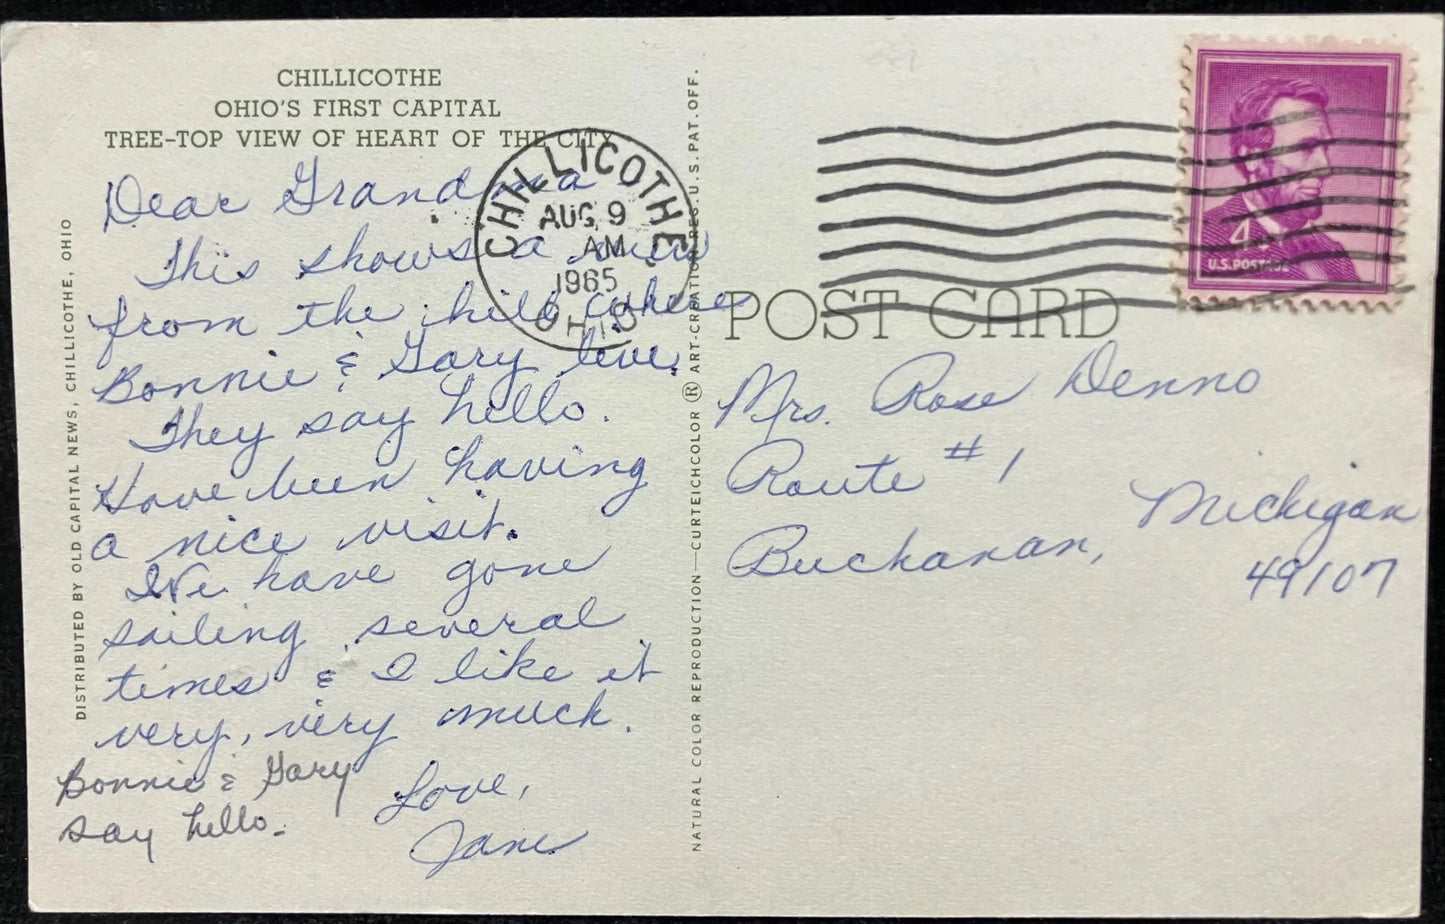 CHILLICOTHE
OHIO'S FIRST CAPITAL
TREE-TOP VIEW OF HEART OF THE CITY
Dear Grandma
This shows a view
from the hill where
Bonnie & Gary live.
They say hello.
Have been having
a nice visit.
We have gone
sailing several
times & I like it
very, very much.
Love,
Jane
Bonnie & Gary
say hello.
DISTRIBUTED BY OLD CAPITAL NEWS, CHILLICOTHE, OHIO
CHILLICOTHE
AUG 9
AM
1965
OHIO
NATURAL COLOR REPRODUCTION—CURTEICHCOLOR ® ART-CREATION REG. U.S. PAT. OFF.
4¢
U.S. POSTAGE
POST CARD
Mrs. Rose Denno
Route #1
Buchanan, Michigan
49107